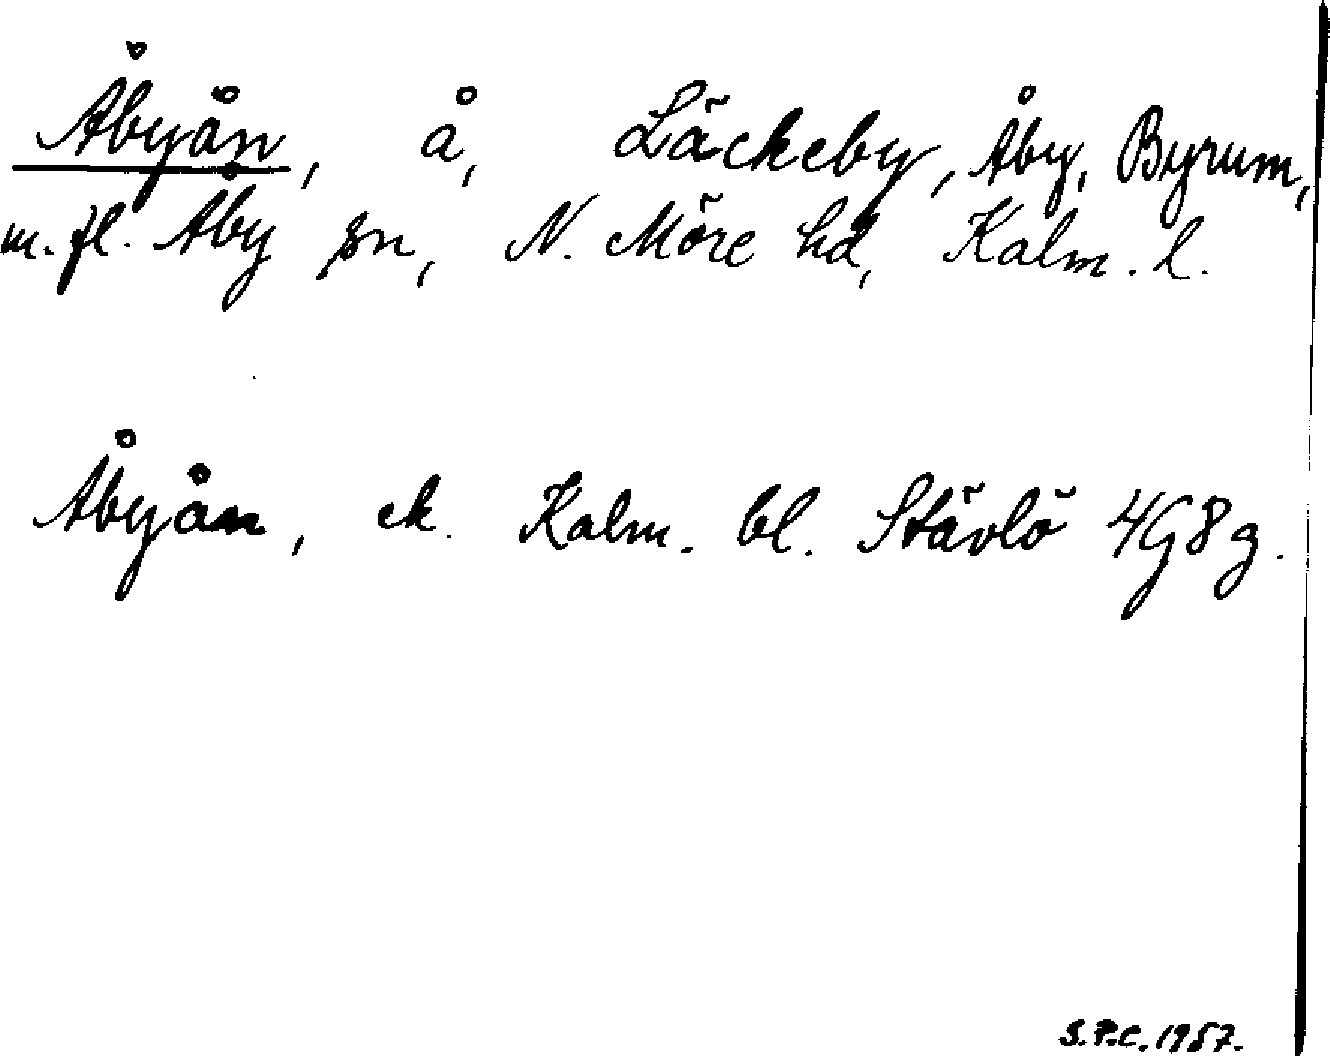 Åbyån, å, Läckeby, Åby, Byrum,
m. fl. Åby sn, N. Möre hd, Kalm. l.
Åbyån, ek. Kalm. bl. Stävlö 4G8g.
S.P.C. 1957.